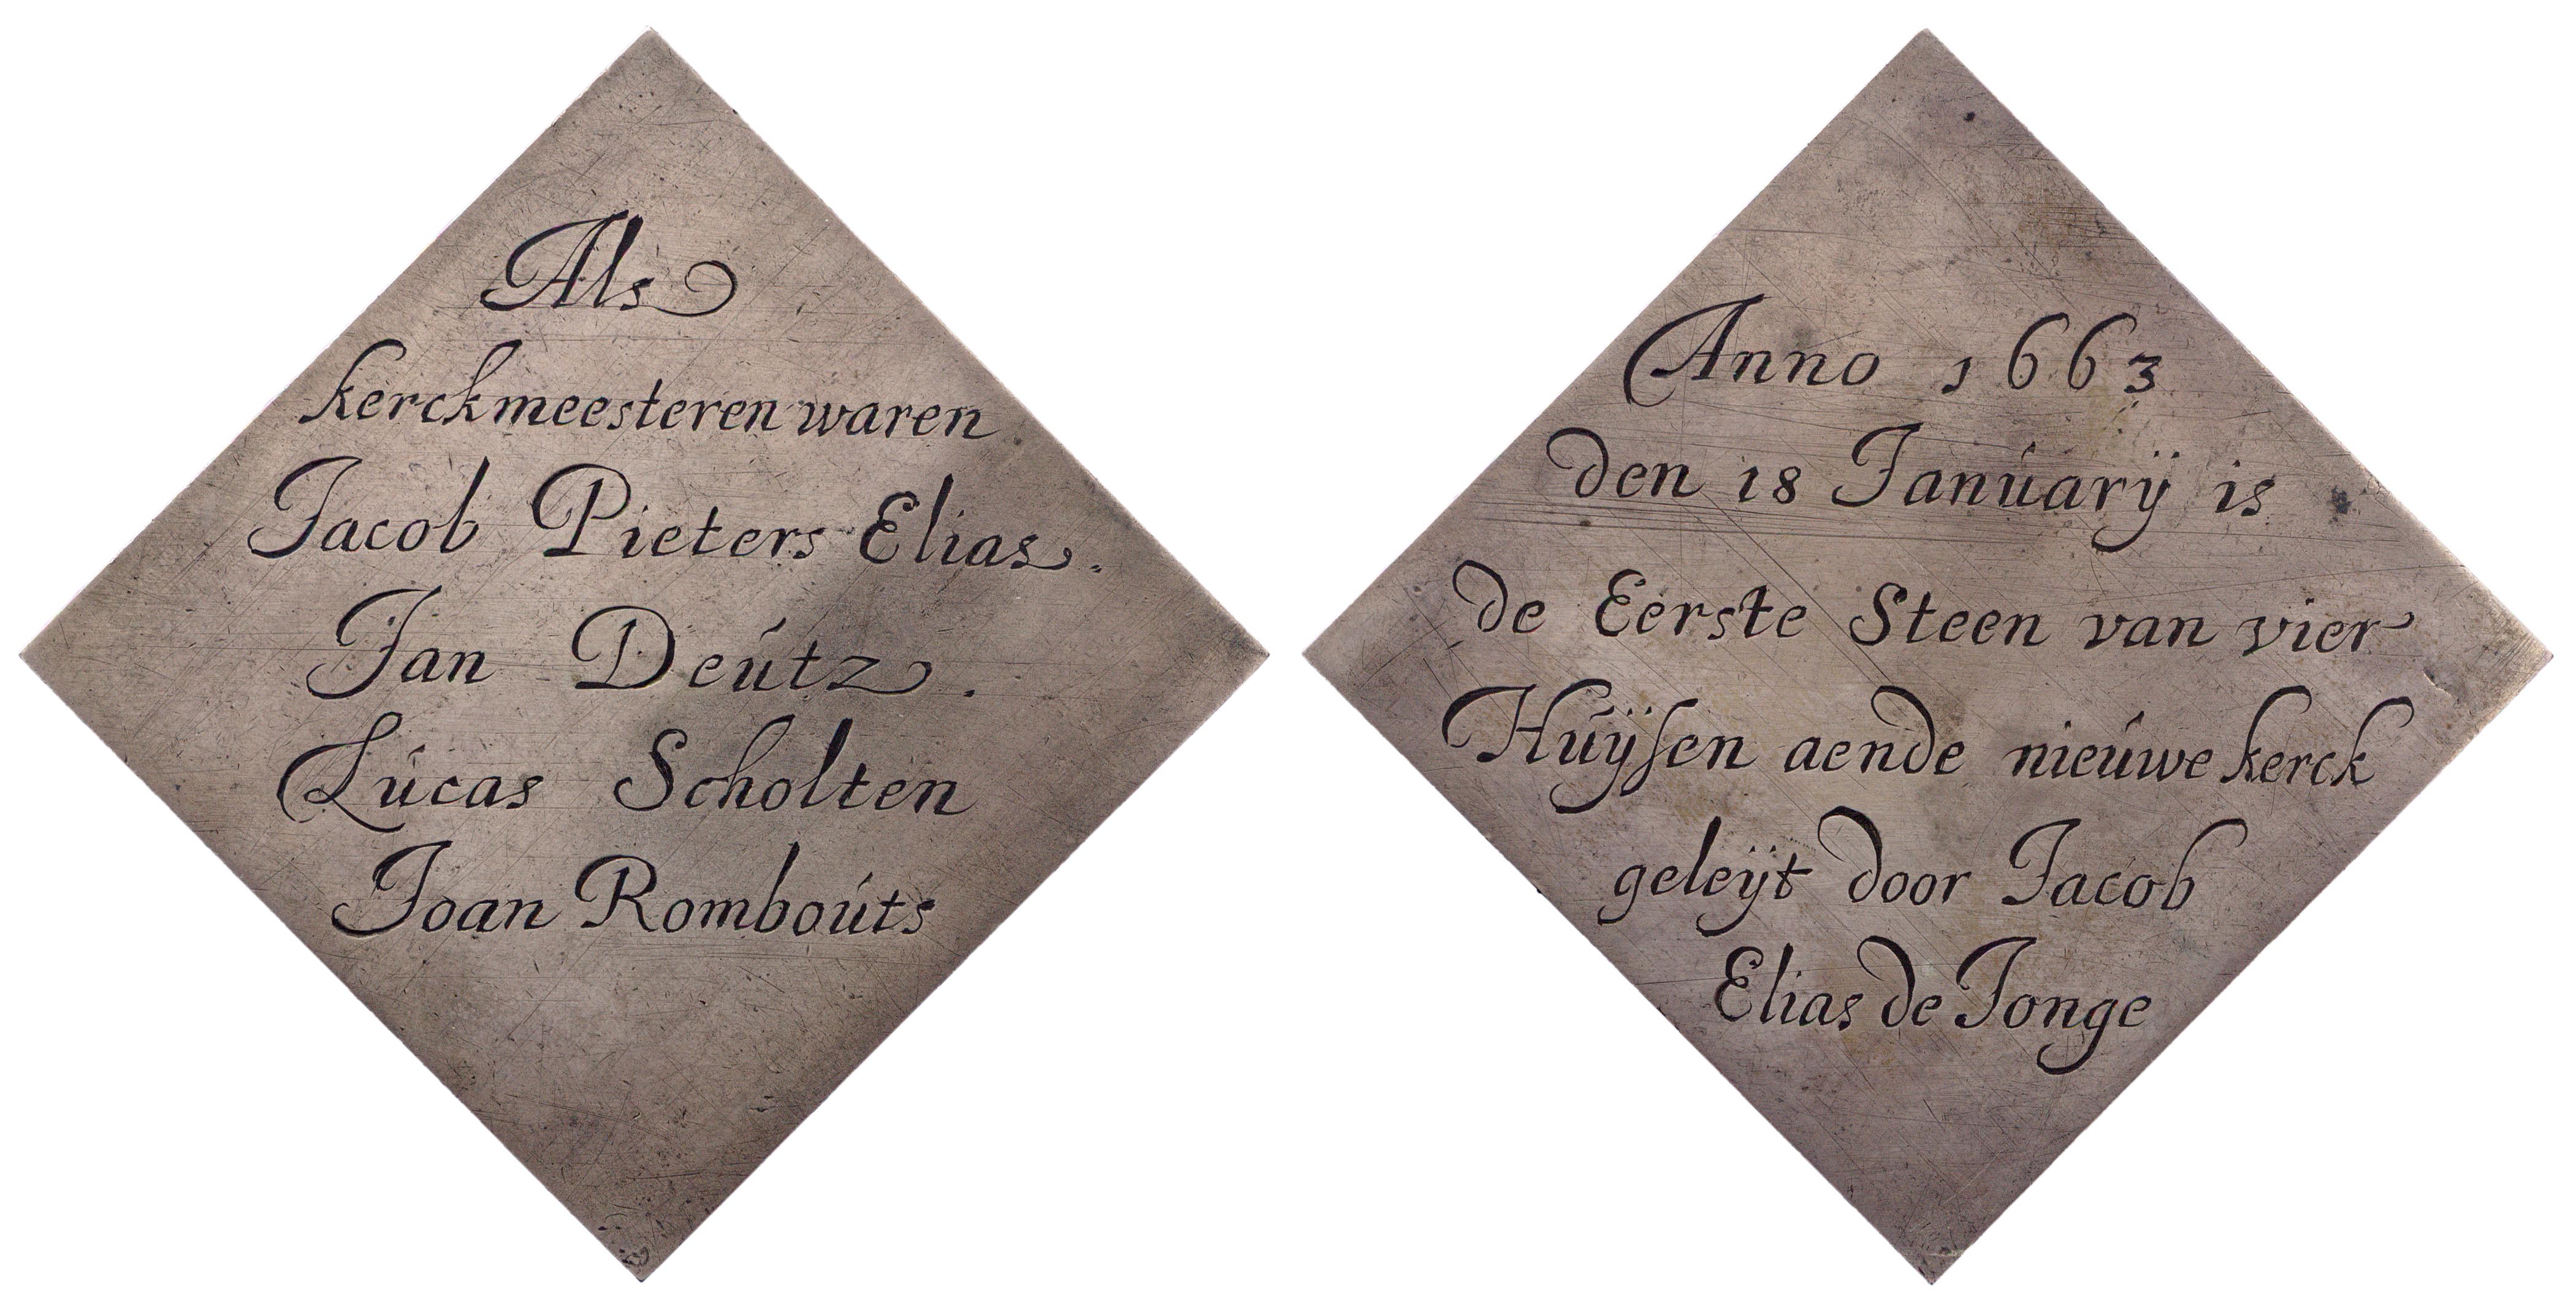 Als
kerckmeesteren waren
Jacob Pieters Elias.
Jan Deútz.
Lúcas Scholten
Joan Romboúts
Anno 1663
den 18 Janúarÿ is
de Eerste Steen van vier
Húÿsen aende nieúwe kerck
geleÿt door Jacob
Elias de Jonge